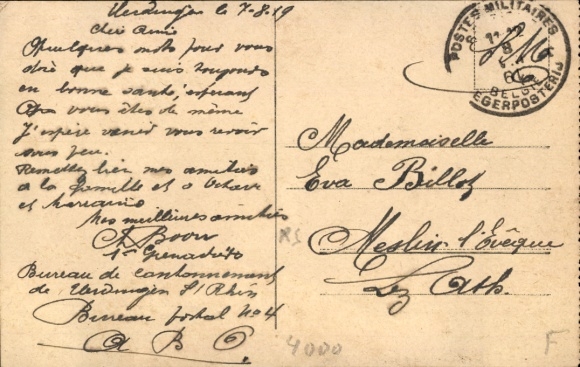 Uerdingen le 7-8-19
cher Amie
Quelques mots pour vous
dire que je suis toujours
en bonne santé, j'espérant
que vous êtes de même
J'espère venir vous revoir
sous peu.
Remettez bien mes amitiés
a la famille et a Octave
et
Mes meilleures amitiés
Boon
1er Grenadiers
Bureau de cantonnement
de Uerdingen S/ Rhin
Bureau postal No 4
A B O.
POSTES MILITAIRES
BELGIE
LEGERPOSTERIJ
S.M.
Mademoiselle
Eva Billot
Meslin-l'Evêque
Lez Ath.
4000
F